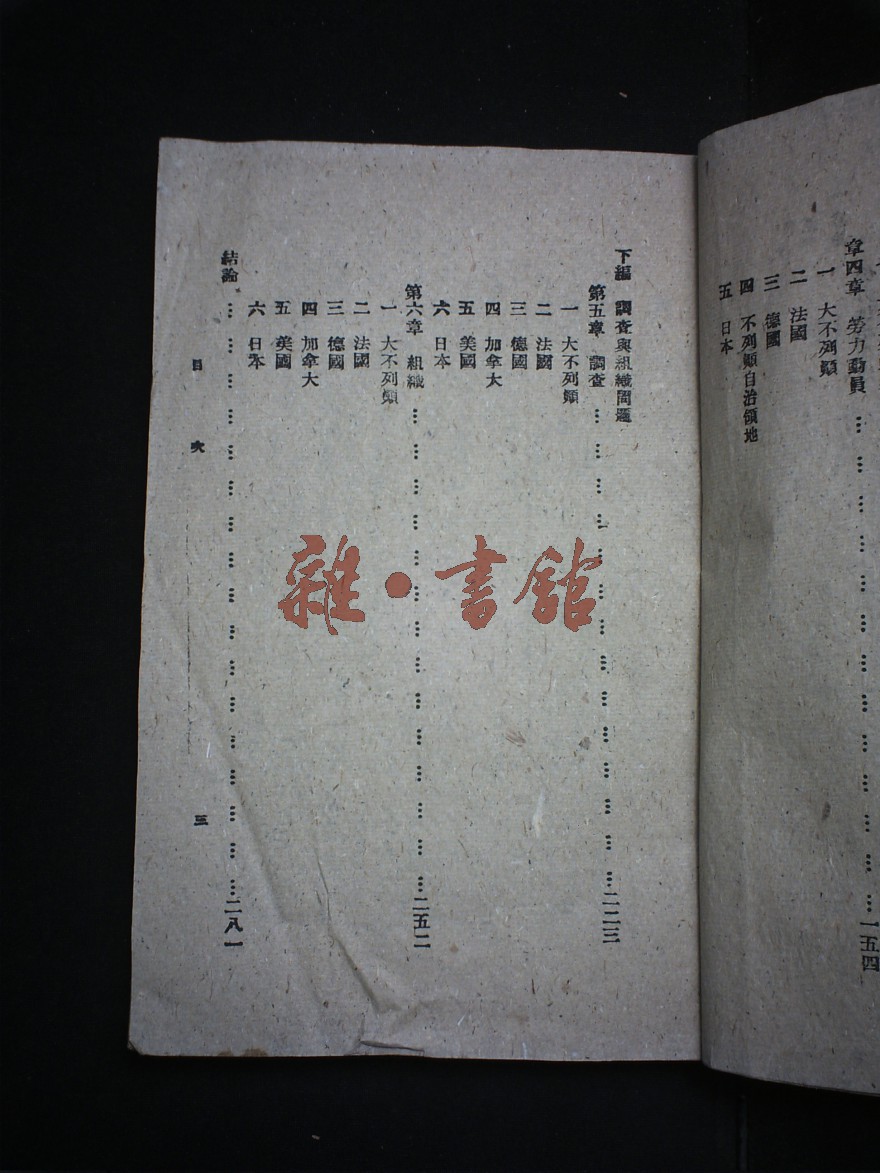 章四章 勞力動員 … … … … … … … … … … … … … … …一五四
一 大不列顛
二 法國
三 德國
四 不列顛自治領地
五 日本
下編 調查與組織問題
第五章 調查 … … … … … … … … … … … … … …二二三
一 大不列顛
二 法國
三 德國
四 加拿大
五 美國
六 日本
第六章 組織 … … … … … … … … … … … … … …二五二
一 大不列顛
二 法國
三 德國
四 加拿大
五 美國
六 日本
結論 … … … … … … … … … … … … … … … … …二八一
目 次 三
雜·書館